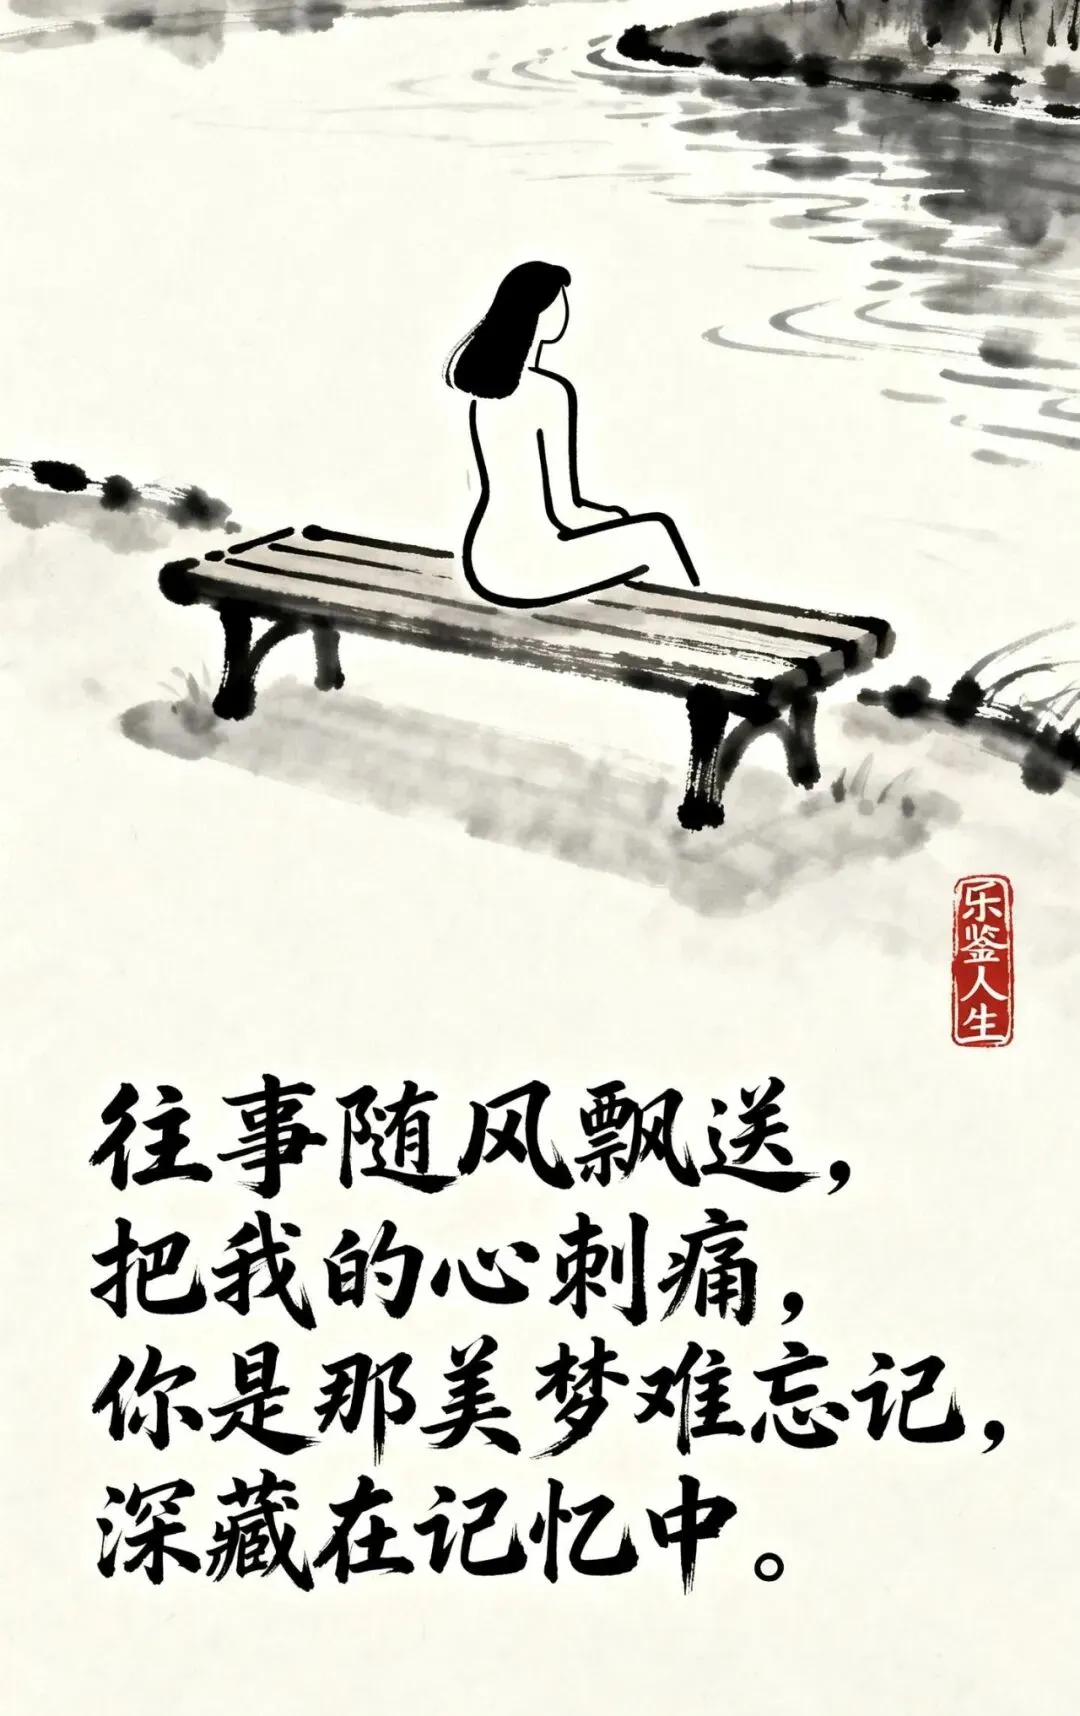 乐鉴人生
往事随风飘送，
把我的心刺痛，
你是那美梦难忘记，
深藏在记忆中。